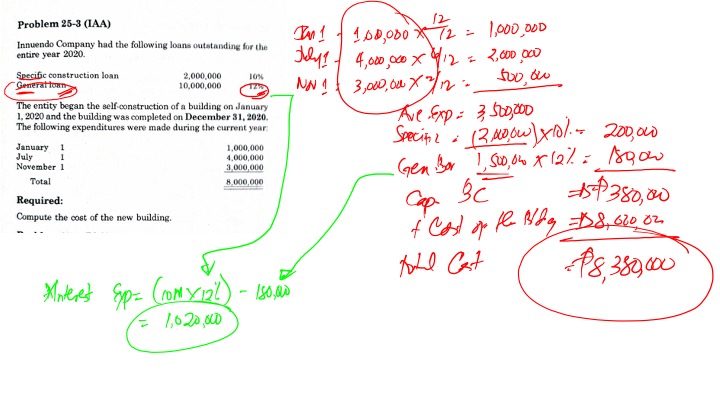 Problem 25-3 (IAA)
Innuendo Company had the following loans outstanding for the
entire year 2020.
Specific construction loan 2,000,000 10%
General loan 10,000,000 12%
The entity began the self-construction of a building on January
1, 2020 and the building was completed on December 31, 2020.
The following expenditures were made during the current year:
January 1 1,000,000
July 1 4,000,000
November 1 3,000,000
Total 8,000,000
Required:
Compute the cost of the new building.
Jan 1 - 1,000,000 x 12/12 = 1,000,000
July 1 - 4,000,000 x 6/12 = 2,000,000
Nov 1 - 3,000,000 x 2/12 = 500,000
Ave Exp = 3,500,000
Specific : (2,000,000) x 10% = 200,000
Gen Bor 1,500,000 x 12% = 180,000
Cap BC = ₱380,000
+ Cost of the Bldg = ₱8,000,000
Total Cost = ₱8,380,000
Interest Exp = (10M x 12%) - 180,000
= 1,020,000